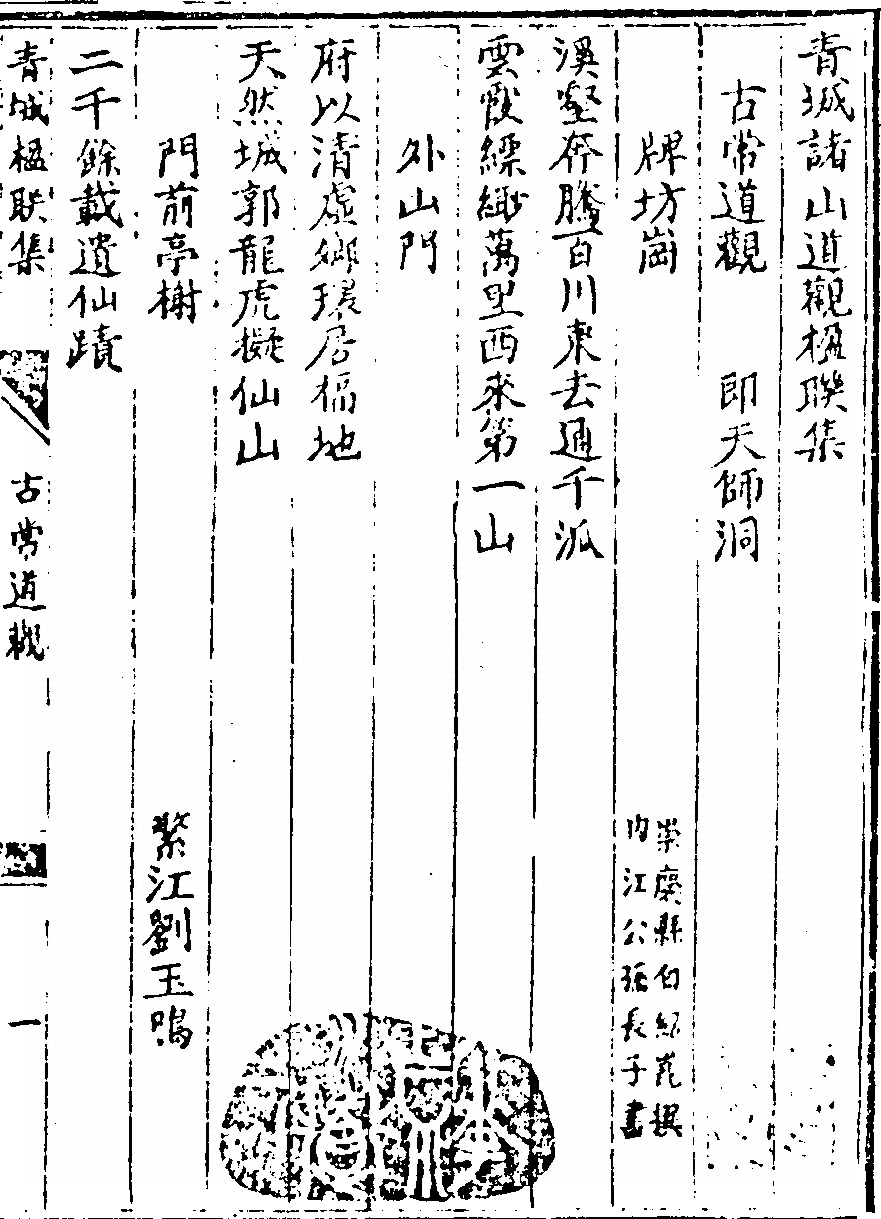 青城諸山道觀楹聯集
古常道觀 即天師洞
牌坊崗
崇慶縣伯紹崑撰
内江公孫長子書
溪壑奔騰百川東去通千派
雲霞縹緲萬里西來第一山
外山門
府以清虛鄉環居福地
天然城郭龍虎擬仙山
門前亭榭 綮江劉玉鳴
二千餘載遺仙蹟
青城楹联集 古常道觀 一